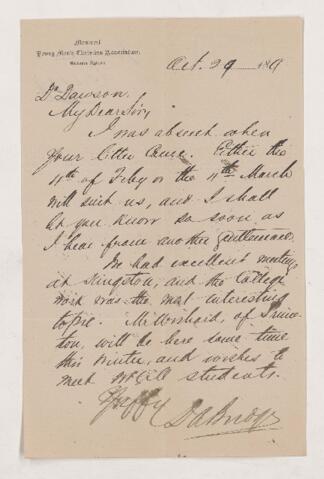 Montreal
Young Men's Christian Association.
Oct. 29 189
Dr Dawson.
My Dear Sir,
I was absent when
your letter came. Either the
4th of Feby or the 4th March
will suit us, and I shall
let you know so soon as
I hear from another gentleman.
We had excellent meetings
at Kingston, and the College
work was the most interesting
topic. Mr Wishard, of Prince-
ton, will be here some time
this winter, and wishes to
meet McGill students.
D A Budge